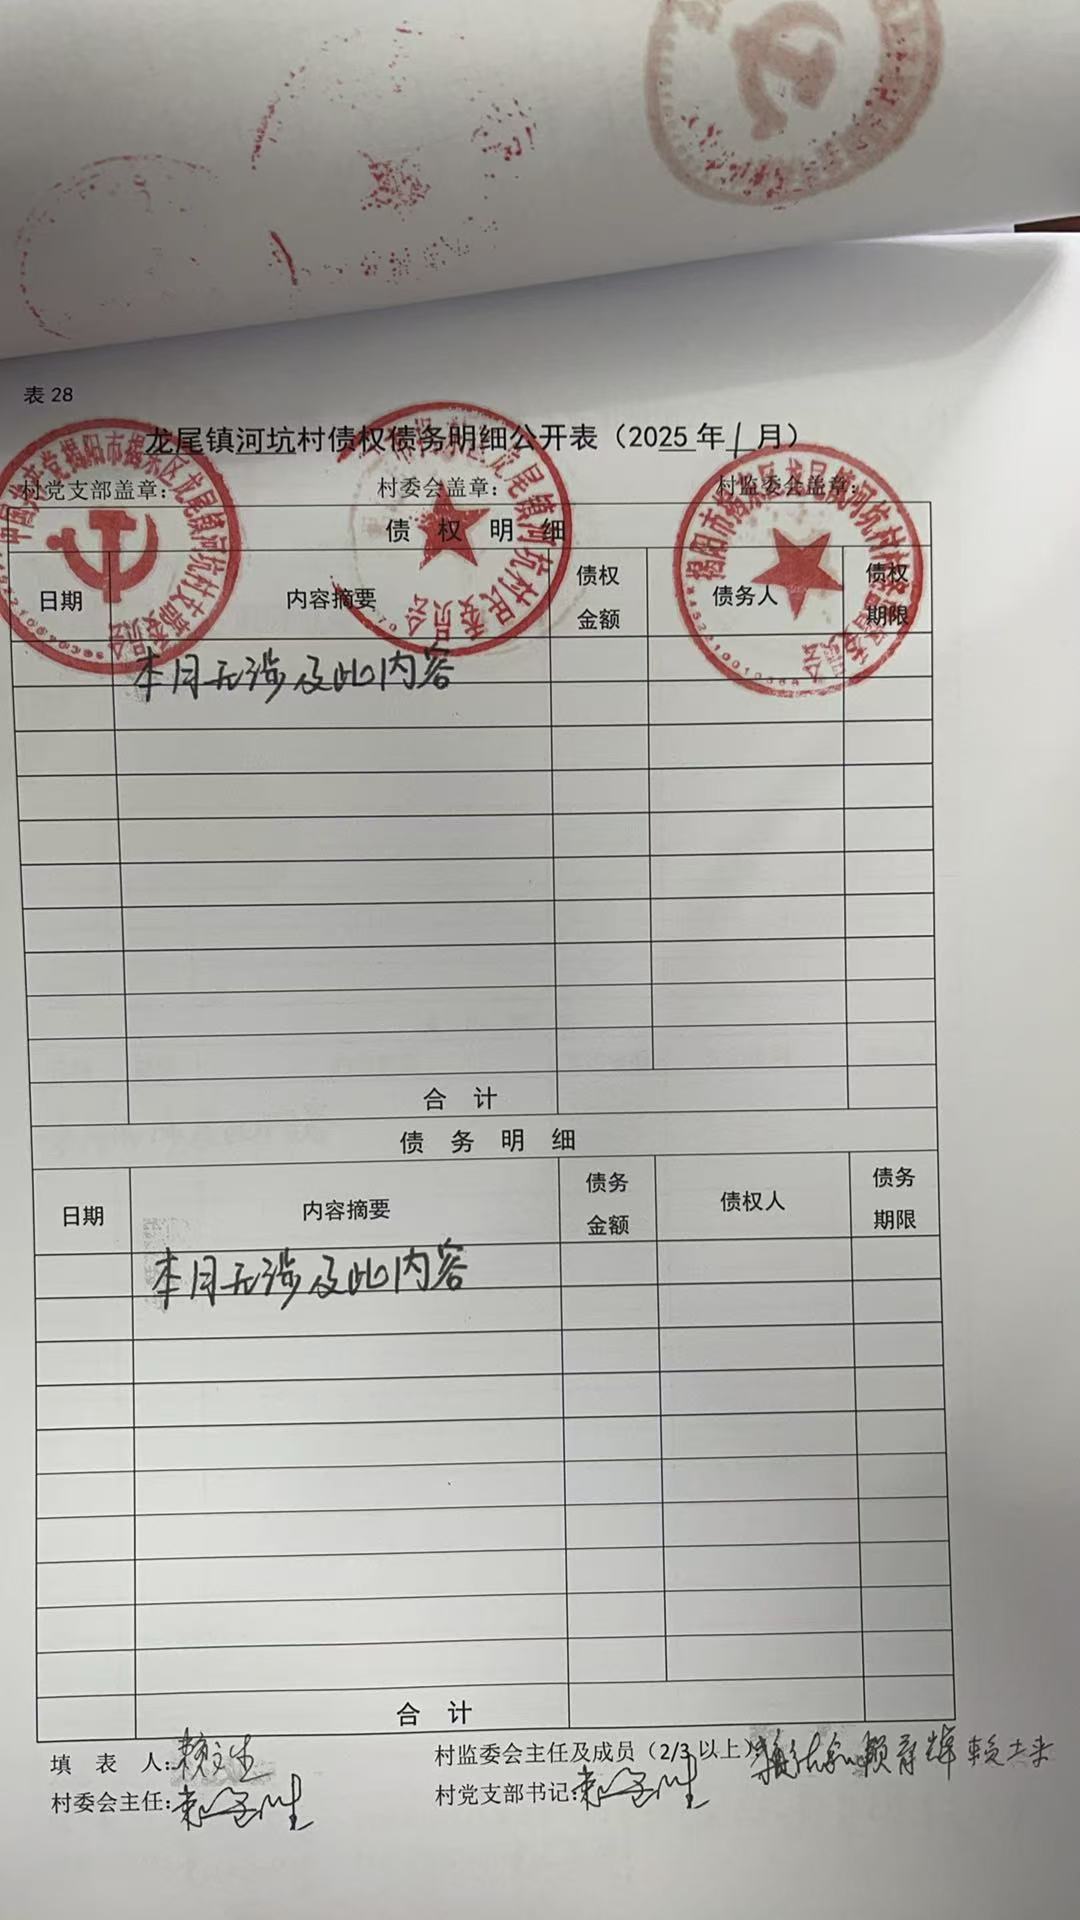 表 28
龙尾镇河坑村债权债务明细公开表（2025 年 1 月）
村党支部盖章： 村委会盖章： 村监委会盖章：
债 权 明 细
日期 内容摘要 债权金额 债务人 债权期限
本月无涉及此内容
合 计
债 务 明 细
日期 内容摘要 债务金额 债权人 债务期限
本月无涉及此内容
合 计
填 表 人： 村监委会主任及成员（2/3 以上）：
村委会主任： 村党支部书记：